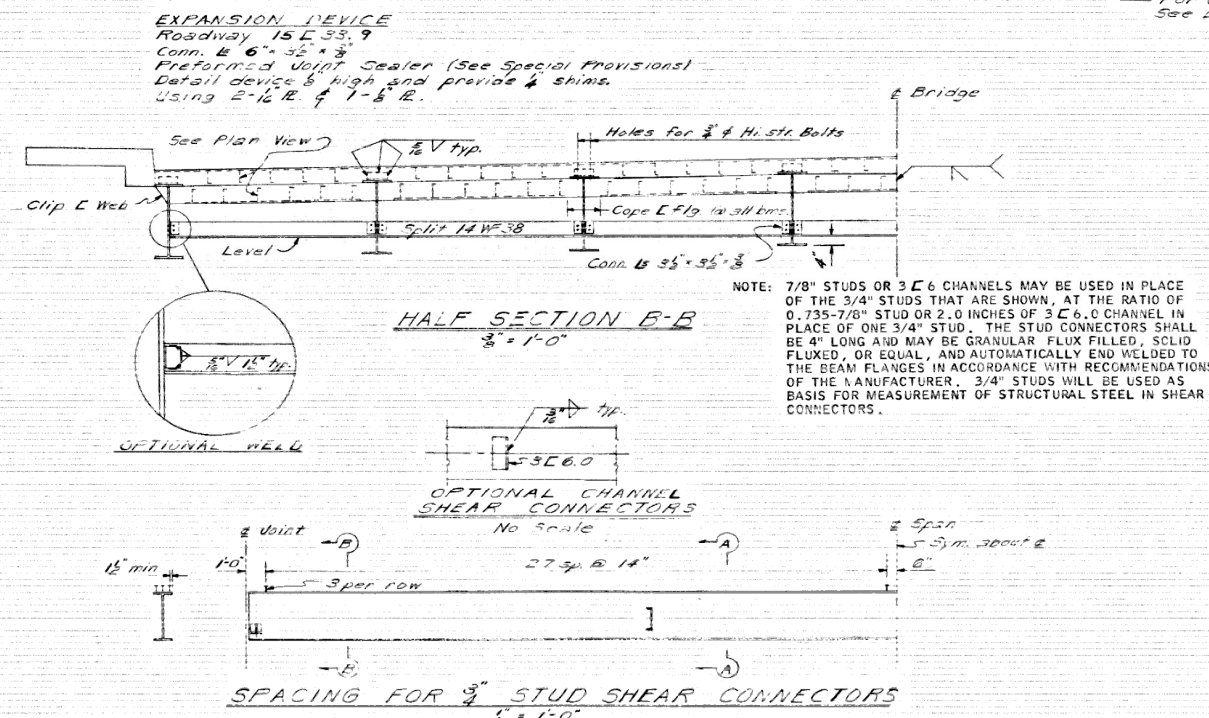 See
EXPANSION DEVICE
Roadway 15 [ 33.9
Conn. Ls 6" x 3½" x ⅜"
Preformed Joint Sealer (See Special Provisions)
Detail device high and provide shims.
Using 2-1/16" PL. & 1-⅛" PL.
℄ Bridge
See Plan View
5/16 V typ.
Holes for ¾" φ Hi. str. Bolts
Clip [ Web
Split 14 WF 38
Cope [ flg @ all bms.
Level
Conn. Ls 3½" x 3½" x ⅜"
4"
HALF SECTION B-B
⅜" = 1'-0"
NOTE: 7/8" STUDS OR 3 [ 6 CHANNELS MAY BE USED IN PLACE
OF THE 3/4" STUDS THAT ARE SHOWN, AT THE RATIO OF
0.735-7/8" STUD OR 2.0 INCHES OF 3 [ 6.0 CHANNEL IN
PLACE OF ONE 3/4" STUD. THE STUD CONNECTORS SHALL
BE 4" LONG AND MAY BE GRANULAR FLUX FILLED, SOLID
FLUXED, OR EQUAL, AND AUTOMATICALLY END WELDED TO
THE BEAM FLANGES IN ACCORDANCE WITH RECOMMENDATIONS
OF THE MANUFACTURER. 3/4" STUDS WILL BE USED AS
BASIS FOR MEASUREMENT OF STRUCTURAL STEEL IN SHEAR
CONNECTORS.
5/16" V 1½" typ.
OPTIONAL WELD
3/16" typ.
3 [ 6.0
OPTIONAL CHANNEL
SHEAR CONNECTORS
No Scale
℄ Joint
℄ Span
Sym. about ℄
B
A
1½" min
1'-0"
27 sp. @ 14"
6"
3 per row
B
A
SPACING FOR ¾" STUD SHEAR CONNECTORS
= 1'-0"